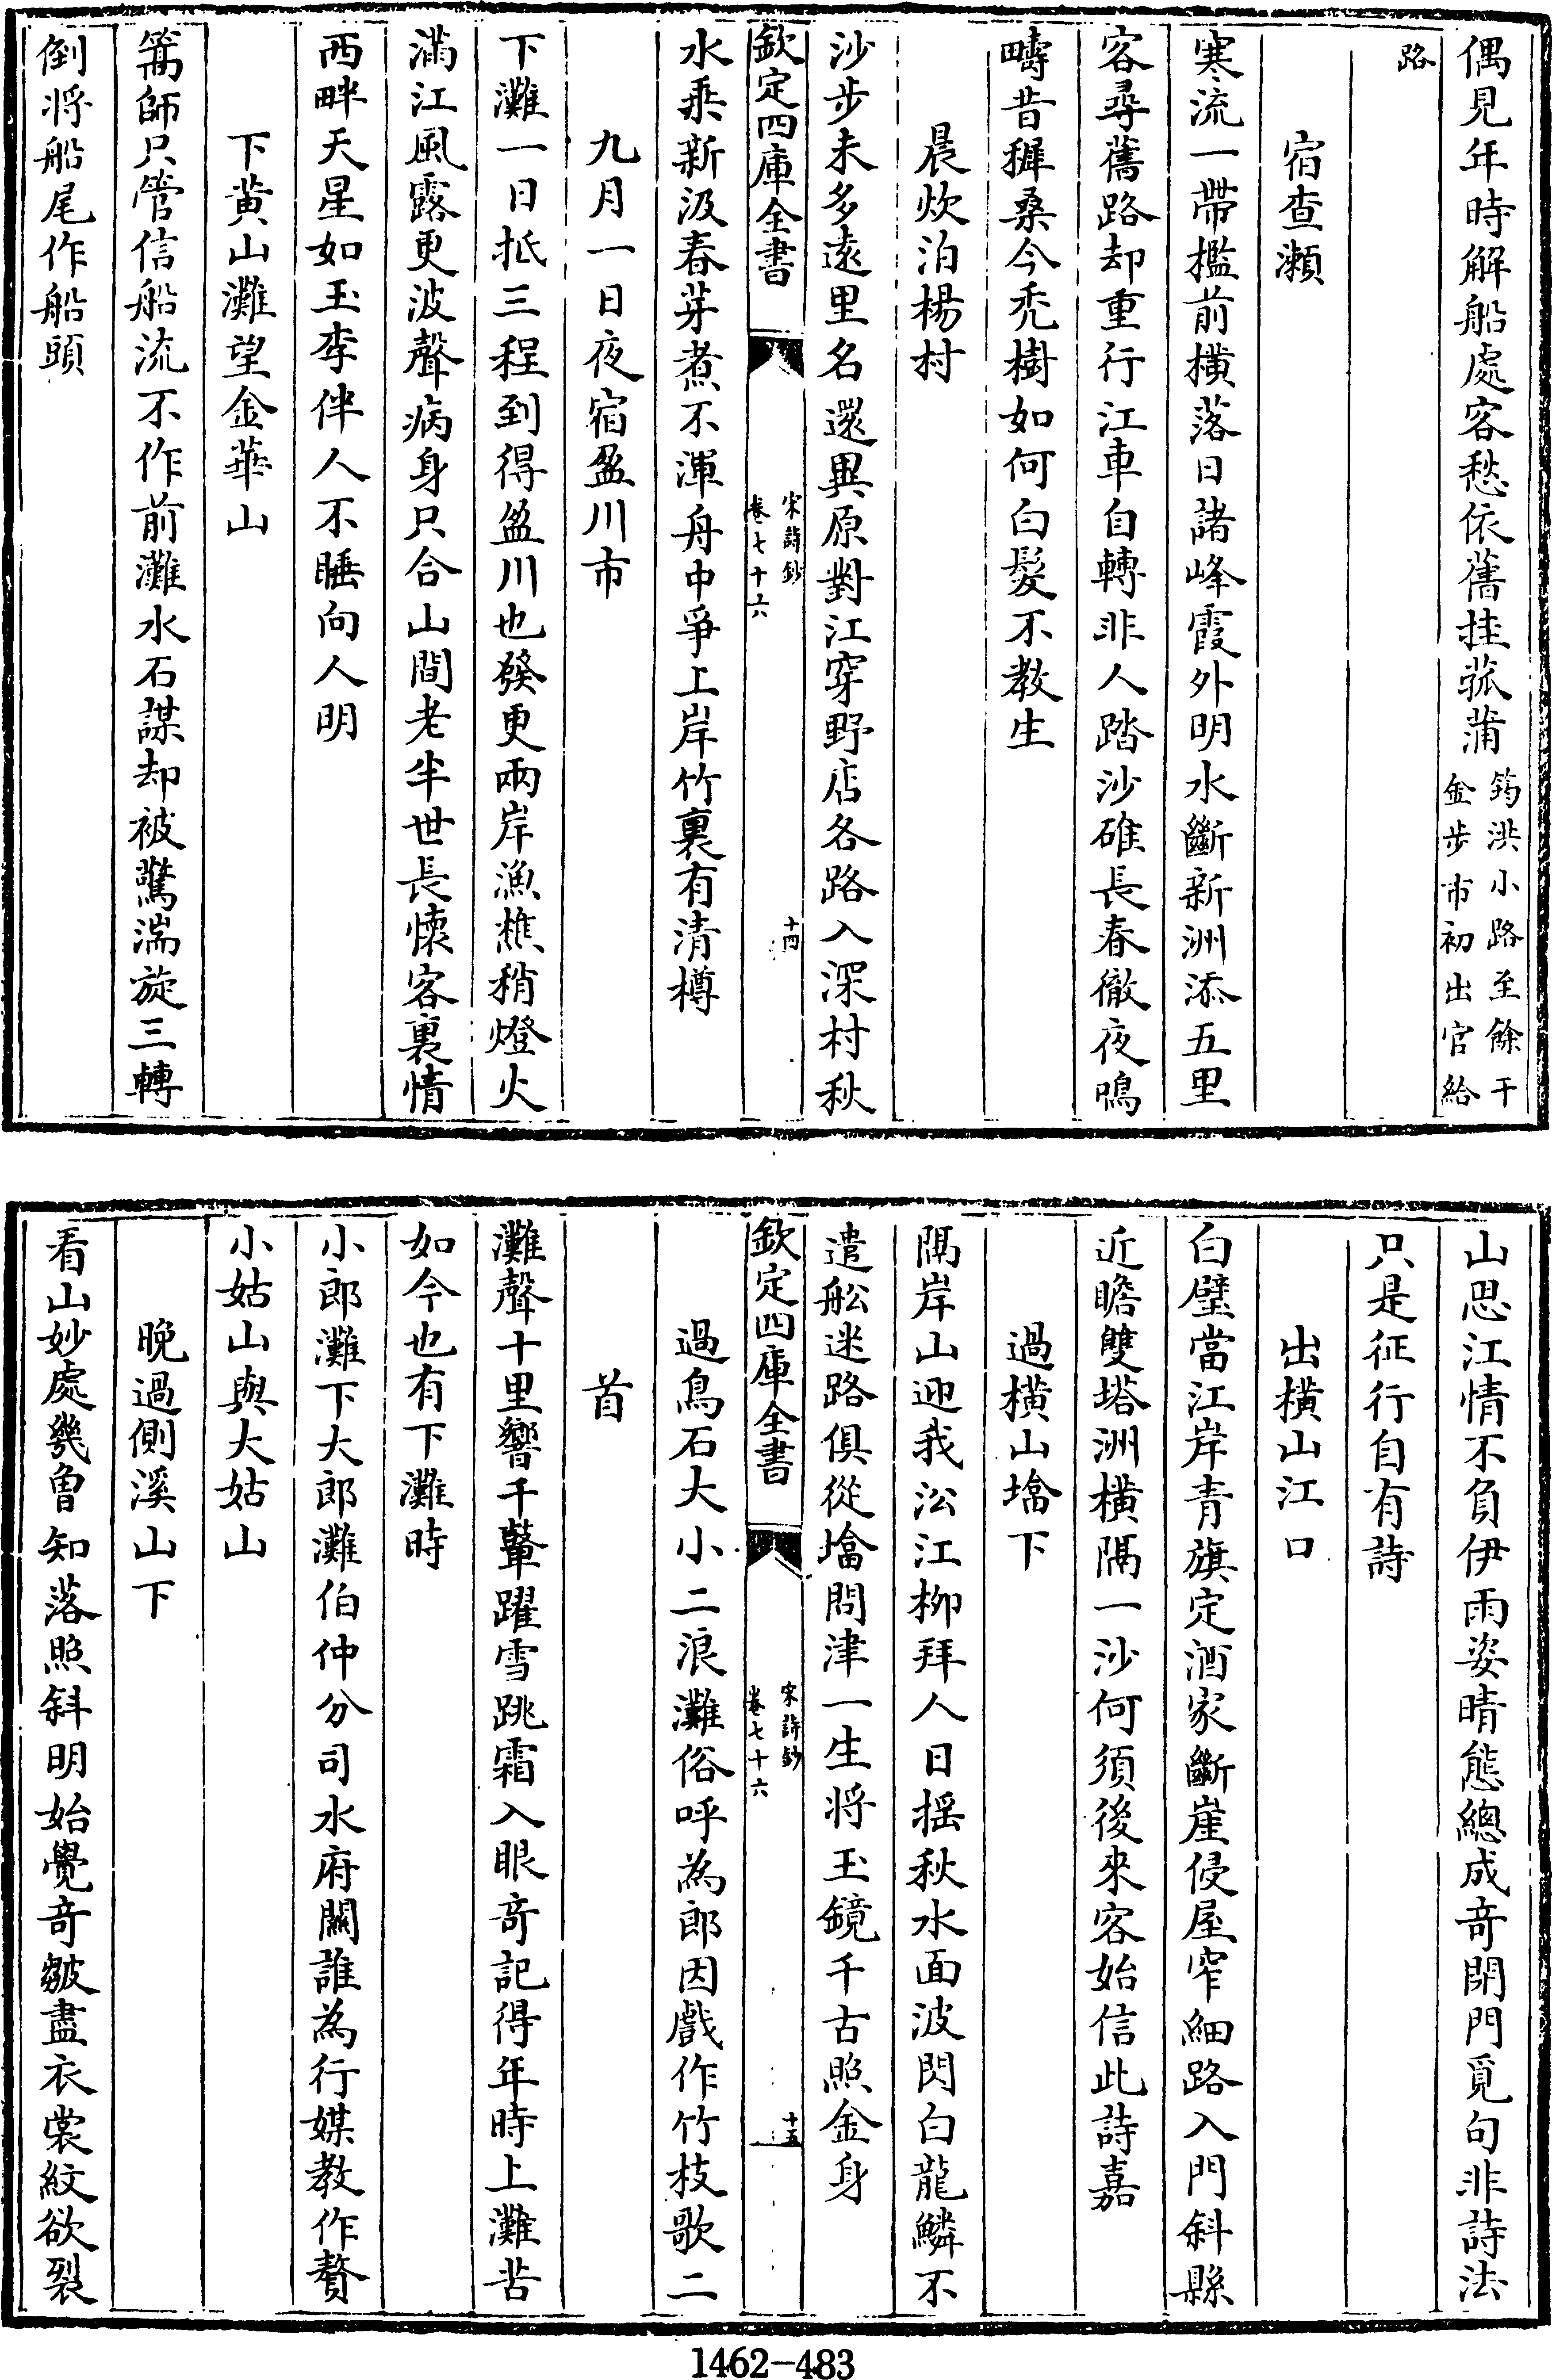 偶見年時解船處客愁依舊挂菰蒲筠洪小路至餘干金步市初出官給
路
宿查瀨
寒流一帶檻前橫落日諸峰霞外明水斷新洲添五里
客尋舊路却重行江車自轉非人踏沙碓長舂徹夜鳴
疇昔穉桑今禿樹如何白髮不教生
晨炊泊楊村
沙步未多遠里名還異原對江穿野店各路入深村秋
欽定四庫全書
宋詩鈔
卷七十六
十四
水乘新汲春芽煮不渾舟中爭上岸竹裏有清樽
九月一日夜宿盈川市
下灘一日抵三程到得盈川也發更兩岸漁樵稍燈火
滿江風露更波聲病身只合山間老半世長懷客裏情
西畔天星如玉李伴人不睡向人明
下黄山灘望金華山
篙師只管信船流不作前灘水石謀却被驚湍旋三轉
倒將船尾作船頭
山思江情不負伊雨姿晴態總成竒閉門覓句非詩法
只是征行自有詩
出橫山江口
白璧當江岸青旗定酒家斷崖侵屋窄細路入門斜縣
近瞻雙塔洲橫隔一沙何須後來客始信此詩嘉
過橫山塔下
隔岸山迎我沿江柳拜人日揺秋水面波閃白龍鱗不
遣船迷路俱從塔問津一生將玉鏡千古照金身
欽定四庫全書
宋詩鈔
卷七十六
十五
過烏石大小二浪灘俗呼為郎因戲作竹枝歌二
首
灘聲十里響千鼙躍雪跳霜入眼竒記得年時上灘苦
如今也有下灘時
小郎灘下大郎灘伯仲分司水府關誰為行媒教作贅
小姑山與大姑山
晚過側溪山下
看山妙處幾曾知落照斜明始覺竒皴盡衣裳紋欲裂
1462-483